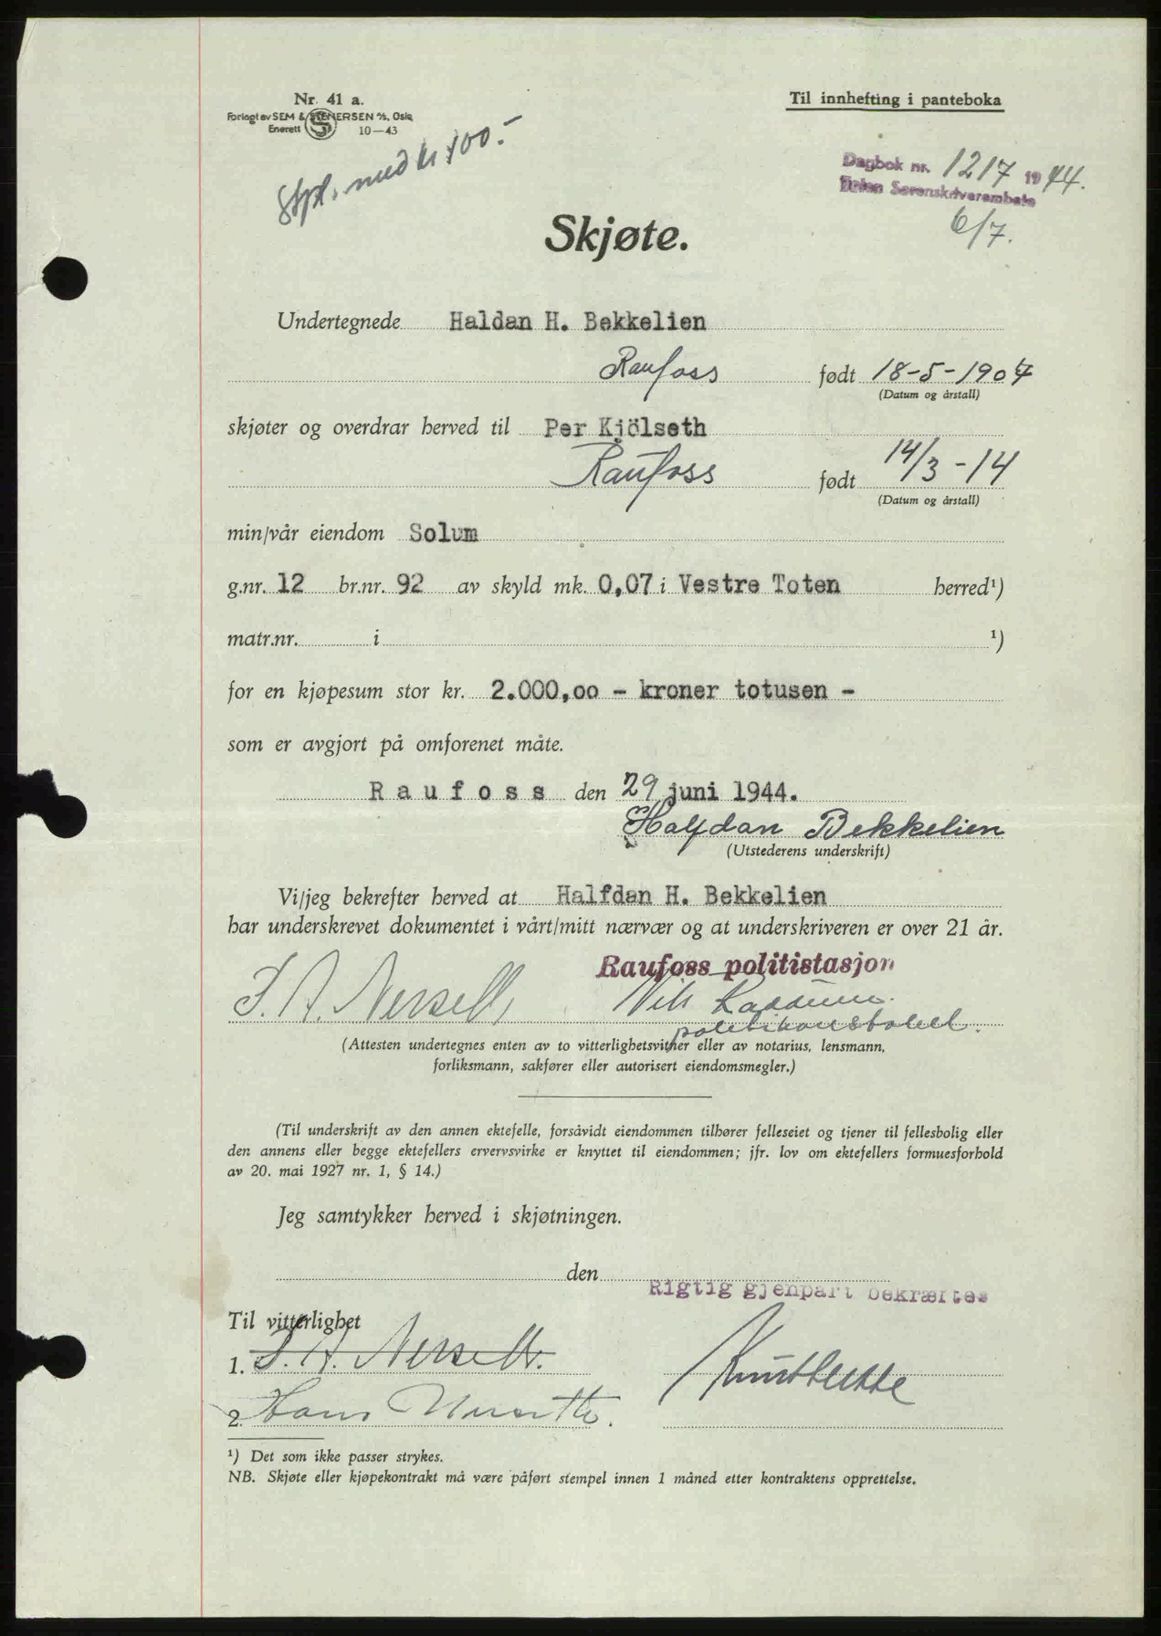 Nr. 41 a.
Til innhefting i panteboka
Forlagt av SEM & STENERSEN A/S, Oslo
Enerett S 10—43
Stpl. med kr 100.-
Dagbok nr. 1217 1944.
Toten Sorenskriverembete
6/7.
Skjøte.
Undertegnede Haldan H. Bekkelien
Raufoss født 18-5-1907
(Datum og årstall)
skjøter og overdrar herved til Per Kjölseth
Raufoss født 14/3-14
(Datum og årstall)
min/vår eiendom Solum
g.nr. 12 br.nr. 92 av skyld mk. 0,07 i Vestre Toten herred¹)
matr.nr. i ¹)
for en kjøpesum stor kr. 2.000,oo - kroner totusen -
som er avgjort på omforenet måte.
Raufoss den 29 juni 1944.
Halfdan Bekkelien
(Utstederens underskrift)
Vi/jeg bekrefter herved at Halfdan H. Bekkelien
har underskrevet dokumentet i vårt/mitt nærvær og at underskriveren er over 21 år.
Raufoss politistasjon
politikonstabel.
(Attesten undertegnes enten av to vitterlighetsvitner eller av notarius, lensmann,
forliksmann, sakfører eller autorisert eiendomsmegler.)
(Til underskrift av den annen ektefelle, forsåvidt eiendommen tilhører felleseiet og tjener til fellesbolig eller
den annens eller begge ektefellers ervervsvirke er knyttet til eiendommen; jfr. lov om ektefellers formuesforhold
av 20. mai 1927 nr. 1, § 14.)
Jeg samtykker herved i skjøtningen.
den
Rigtig gjenpart bekræftes
Til vitterlighet
1.
2. Hans
¹) Det som ikke passer strykes.
NB. Skjøte eller kjøpekontrakt må være påført stempel innen 1 måned etter kontraktens opprettelse.